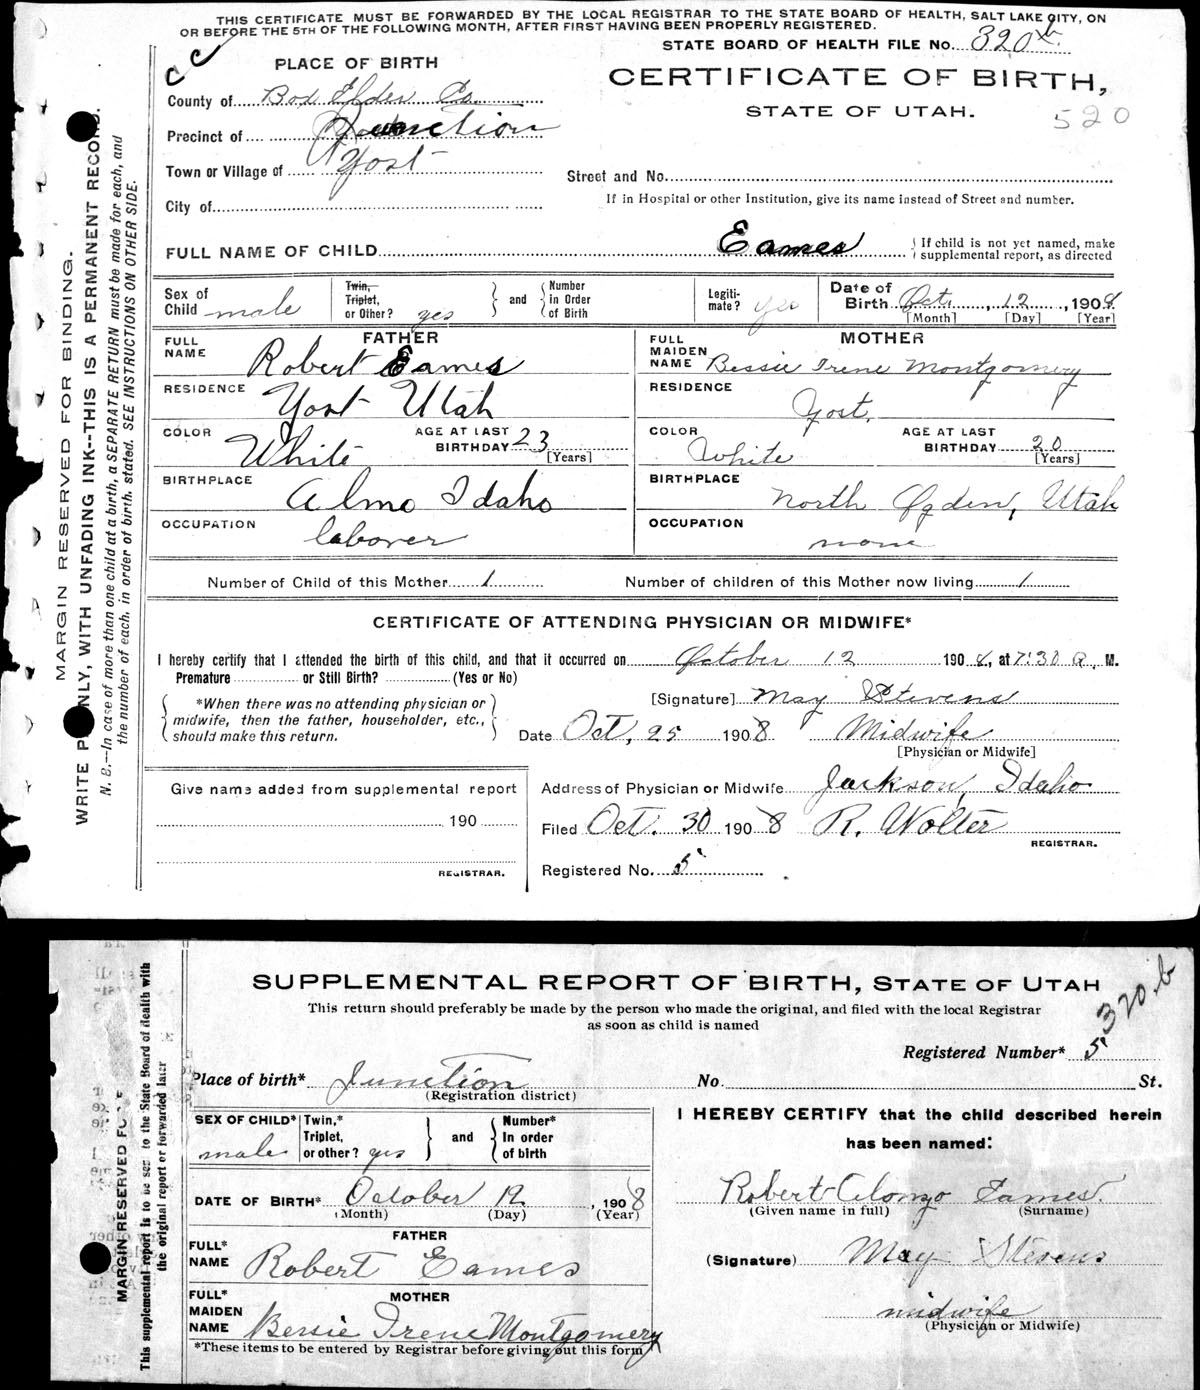 THIS CERTIFICATE MUST BE FORWARDED BY THE LOCAL REGISTRAR TO THE STATE BOARD OF HEALTH, SALT LAKE CITY, ON
OR BEFORE THE 5TH OF THE FOLLOWING MONTH, AFTER FIRST HAVING BEEN PROPERLY REGISTERED.
STATE BOARD OF HEALTH FILE No. 320 b
CC
PLACE OF BIRTH
CERTIFICATE OF BIRTH,
STATE OF UTAH.
520
County of Box Elder Co.
Precinct of Junction
Town or Village of Yost
Street and No.
City of
If in Hospital or other Institution, give its name instead of Street and number.
FULL NAME OF CHILD Eames
If child is not yet named, make
supplemental report, as directed
Sex of Child male
Twin, Triplet, or Other? yes
and
Number in Order of Birth
Legiti- mate? yes
Date of Birth Oct. 12, 1908
[Month] [Day] [Year]
FATHER
MOTHER
FULL NAME Robert Eames
FULL MAIDEN NAME Bessie Irene Montgomery
RESIDENCE Yost Utah
RESIDENCE Yost.
COLOR White
AGE AT LAST BIRTHDAY 23 [Years]
COLOR White
AGE AT LAST BIRTHDAY 20 [Years]
BIRTHPLACE Almo Idaho
BIRTHPLACE North Ogden, Utah
OCCUPATION laborer
OCCUPATION none
Number of Child of this Mother 1
Number of children of this Mother now living 1
CERTIFICATE OF ATTENDING PHYSICIAN OR MIDWIFE*
I hereby certify that I attended the birth of this child, and that it occurred on October 12 1908, at 7:30 a. M.
Premature or Still Birth? (Yes or No)
*When there was no attending physician or
midwife, then the father, householder, etc.,
should make this return.
[Signature] May Stevens
Date Oct, 25 1908 Midwife
[Physician or Midwife]
Give name added from supplemental report
190
REGISTRAR.
Address of Physician or Midwife Jackson, Idaho
Filed Oct. 30 1908 R. Wolter
REGISTRAR.
Registered No. 5
MARGIN RESERVED FOR BINDING.
WRITE P NLY, WITH UNFADING INK--THIS IS A PERMANENT RECORD.
N. B.--In case of more than one child at a birth, a SEPARATE RETURN must be made for each, and
the number of each, in order of birth, stated. SEE INSTRUCTIONS ON OTHER SIDE.
SUPPLEMENTAL REPORT OF BIRTH, STATE OF UTAH
320 b
This return should preferably be made by the person who made the original, and filed with the local Registrar
as soon as child is named
Registered Number* 5
Place of birth* Junction
(Registration district)
No. St.
SEX OF CHILD* male
Twin,* Triplet, or other? yes
and
Number* In order of birth
DATE OF BIRTH* October 12, 1908
(Month) (Day) (Year)
FATHER
FULL* NAME Robert Eames
MOTHER
FULL* MAIDEN NAME Bessie Irene Montgomery
*These items to be entered by Registrar before giving out this form
I HEREBY CERTIFY that the child described herein
has been named:
Robert Alonzo Eames.
(Given name in full) (Surname)
(Signature) May Stevens
midwife
(Physician or Midwife)
MARGIN RESERVED
This supplemental report is to be sent to the State Board of Health with
the original report or forwarded later